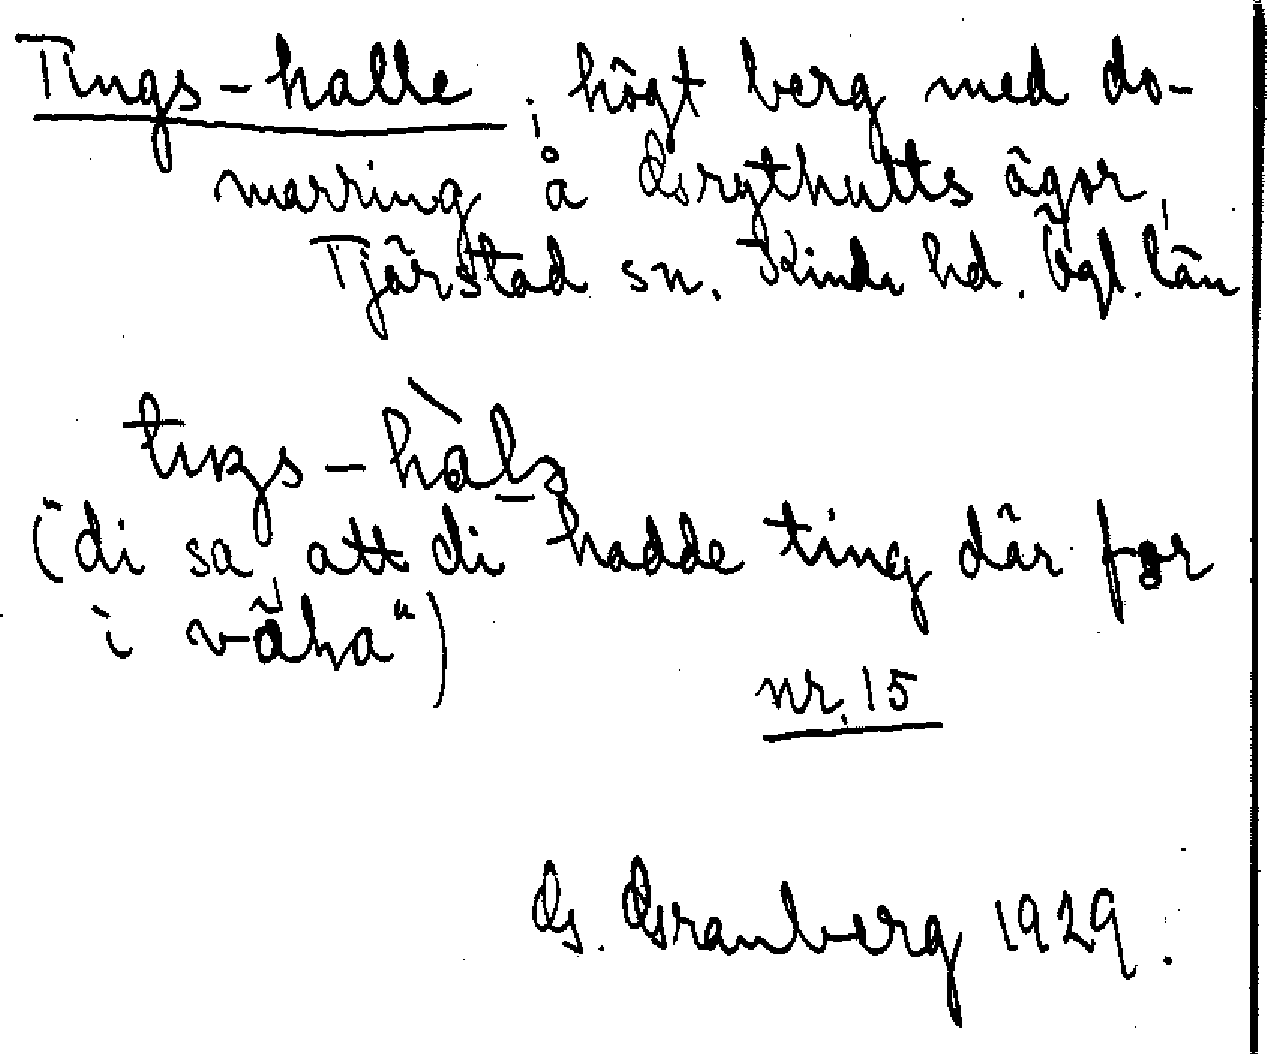 Tings-halle, högt berg med do-
marring å Grythults ägor,
Tjärstad sn. Kinda hd. Ögl. län
tıŋs-hàlə
("di sa att di hadde ting där för
i väḷa")
nr. 15
G. Granberg 1929.